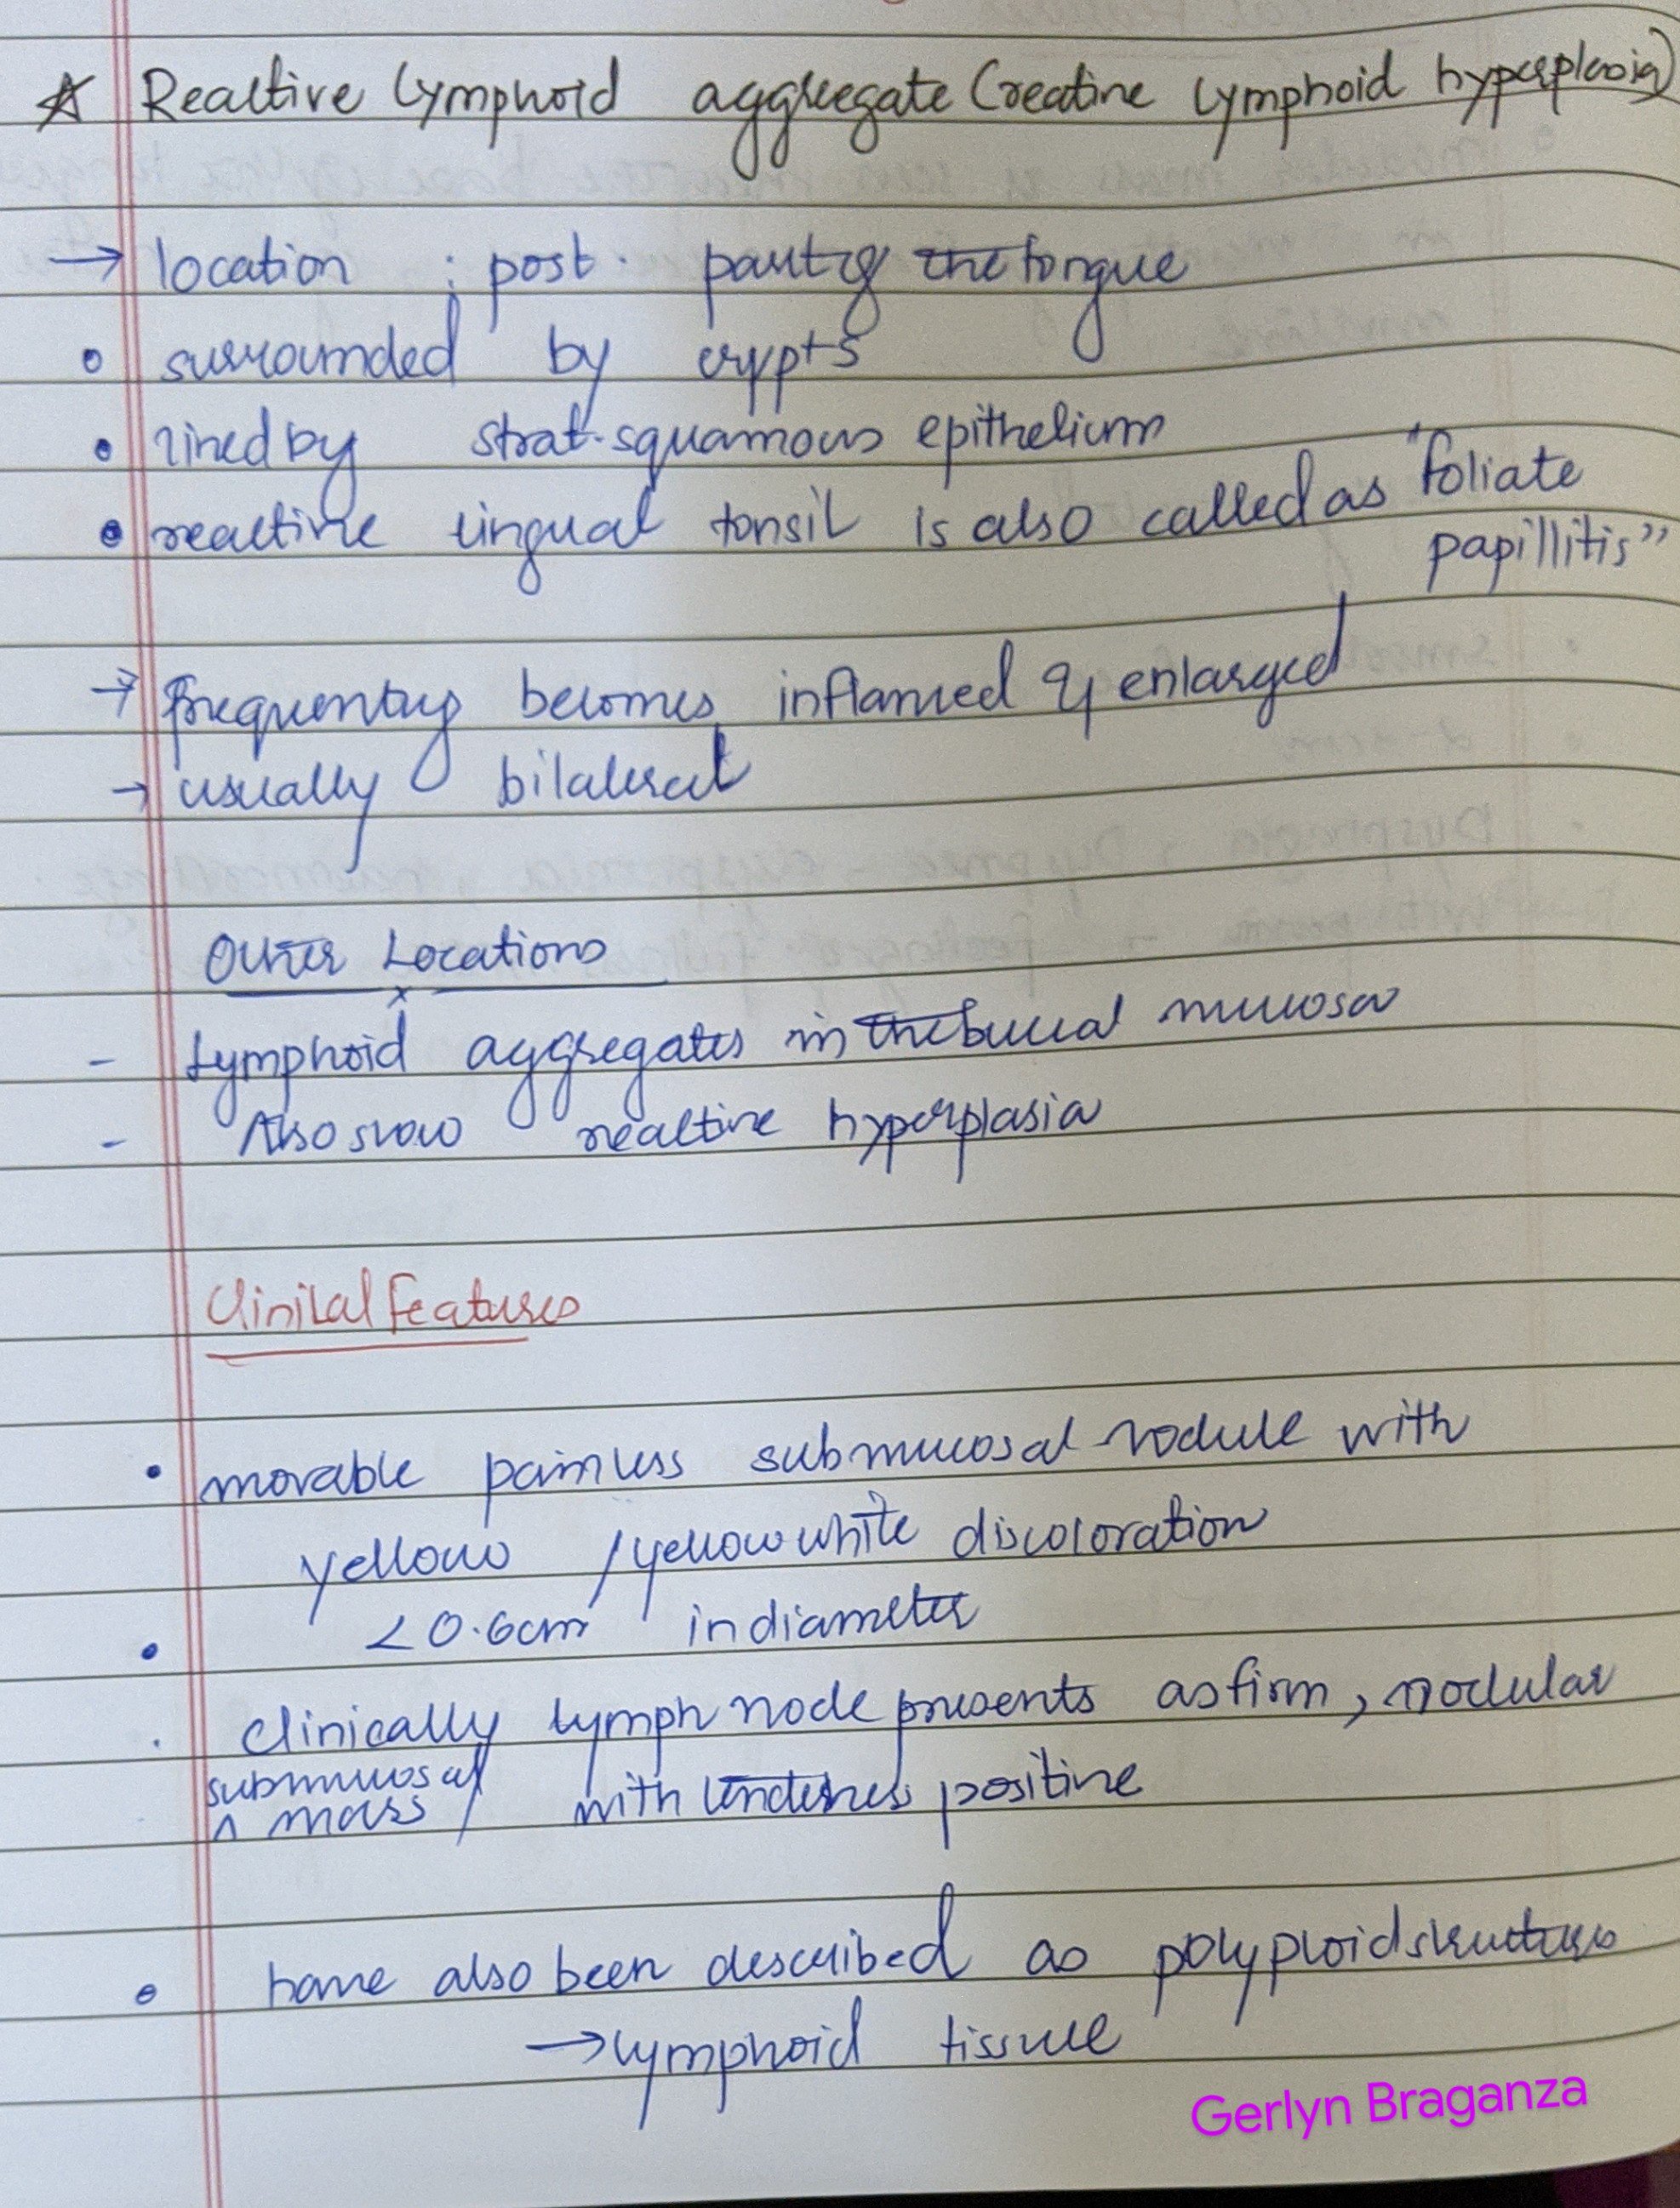 ☆ Reactive lymphoid aggregate (reactive lymphoid hyperplasia)
→ location : post. part of the tongue
• surrounded by crypts
• lined by strat. squamous epithelium
• reactive lingual tonsil is also called as "foliate
papillitis"
→ frequently becomes inflamed & enlarged
→ usually bilateral
Other Locations
- Lymphoid aggregates in the buccal mucosa
- Also show reactive hyperplasia
Clinical Features
• movable painless submucosal nodule with
yellow / yellow white discoloration
• <0.6cm in diameter
• clinically lymph node presents as firm, nodular
submucosal
^ mass / with tenderness positive
• have also been described as polyploid structures
→ lymphoid tissue
Gerlyn Braganza